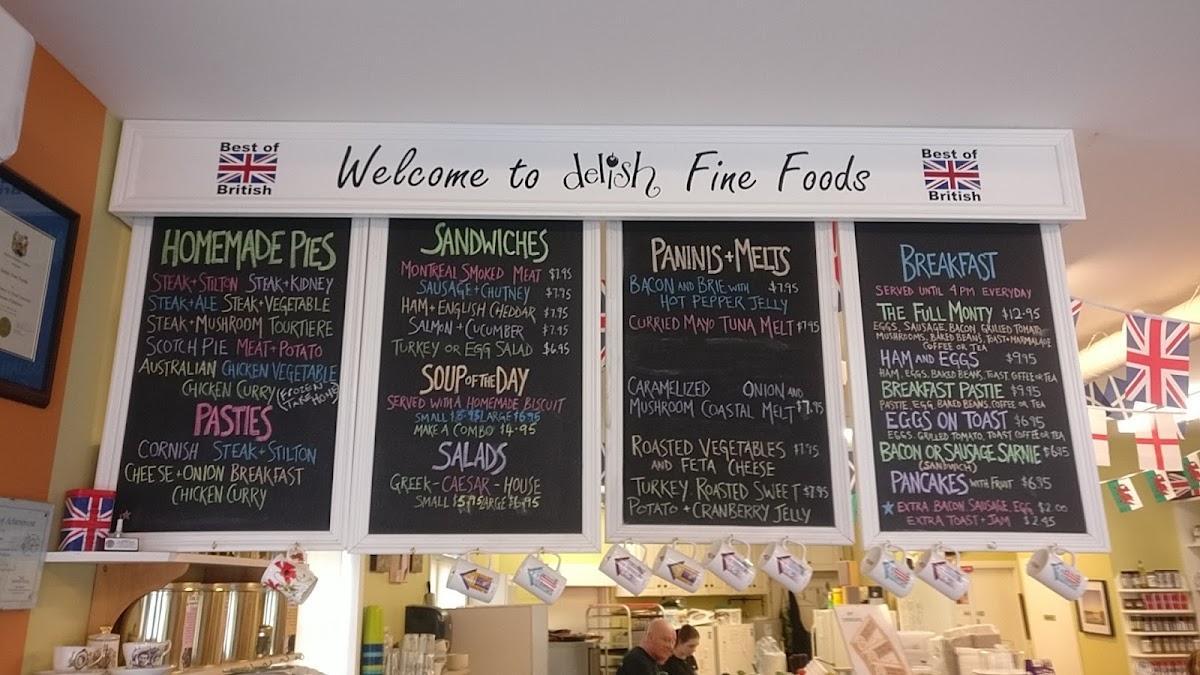 Best of
British
Welcome to delish Fine Foods
Best of
British
HOMEMADE PIES
STEAK+STILTON STEAK+KIDNEY
STEAK+ALE STEAK+VEGETABLE
STEAK+MUSHROOM TOURTIERE
SCOTCH PIE MEAT+POTATO
AUSTRALIAN CHICKEN VEGETABLE
CHICKEN CURRY (FROZEN
TAKE HOME)
PASTIES
CORNISH STEAK+STILTON
CHEESE+ONION BREAKFAST
CHICKEN CURRY
SANDWICHES
MONTREAL SMOKED MEAT $7.95
SAUSAGE+CHUTNEY $7.95
HAM+ENGLISH CHEDDAR $7.95
SALMON+CUCUMBER $7.95
TURKEY OR EGG SALAD $6.95
SOUP OF THE DAY
SERVED WITH A HOMEMADE BISCUIT
SMALL LARGE $6.95
MAKE A COMBO $4.95
SALADS
GREEK-CAESAR-HOUSE
SMALL $5.95 LARGE $6.95
PANINIS+MELTS
BACON AND BRIE WITH $7.95
HOT PEPPER JELLY
CURRIED MAYO TUNA MELT $7.95
CARAMELIZED ONION AND
MUSHROOM COASTAL MELT $7.95
ROASTED VEGETABLES $7.95
AND FETA CHEESE
TURKEY, ROASTED SWEET $7.95
POTATO + CRANBERRY JELLY
BREAKFAST
SERVED UNTIL 4PM EVERYDAY
THE FULL MONTY $12.95
EGGS, SAUSAGE, BACON GRILLED TOMATO,
MUSHROOMS, BAKED BEANS, TOAST+MARMALADE
COFFEE OR TEA
HAM AND EGGS $9.95
HAM, EGGS, BAKED BEANS, TOAST, COFFEE OR TEA
BREAKFAST PASTIE $9.95
PASTIE, EGG, BAKED BEANS, COFFEE OR TEA
EGGS ON TOAST $6.95
EGGS, GRILLED TOMATO, TOAST COFFEE OR TEA
BACON OR SAUSAGE SARNIE $6.95
(SANDWICH)
PANCAKES WITH FRUIT $6.95
EXTRA BACON SAUSAGE, EGG $2.00
EXTRA TOAST + JAM $2.45